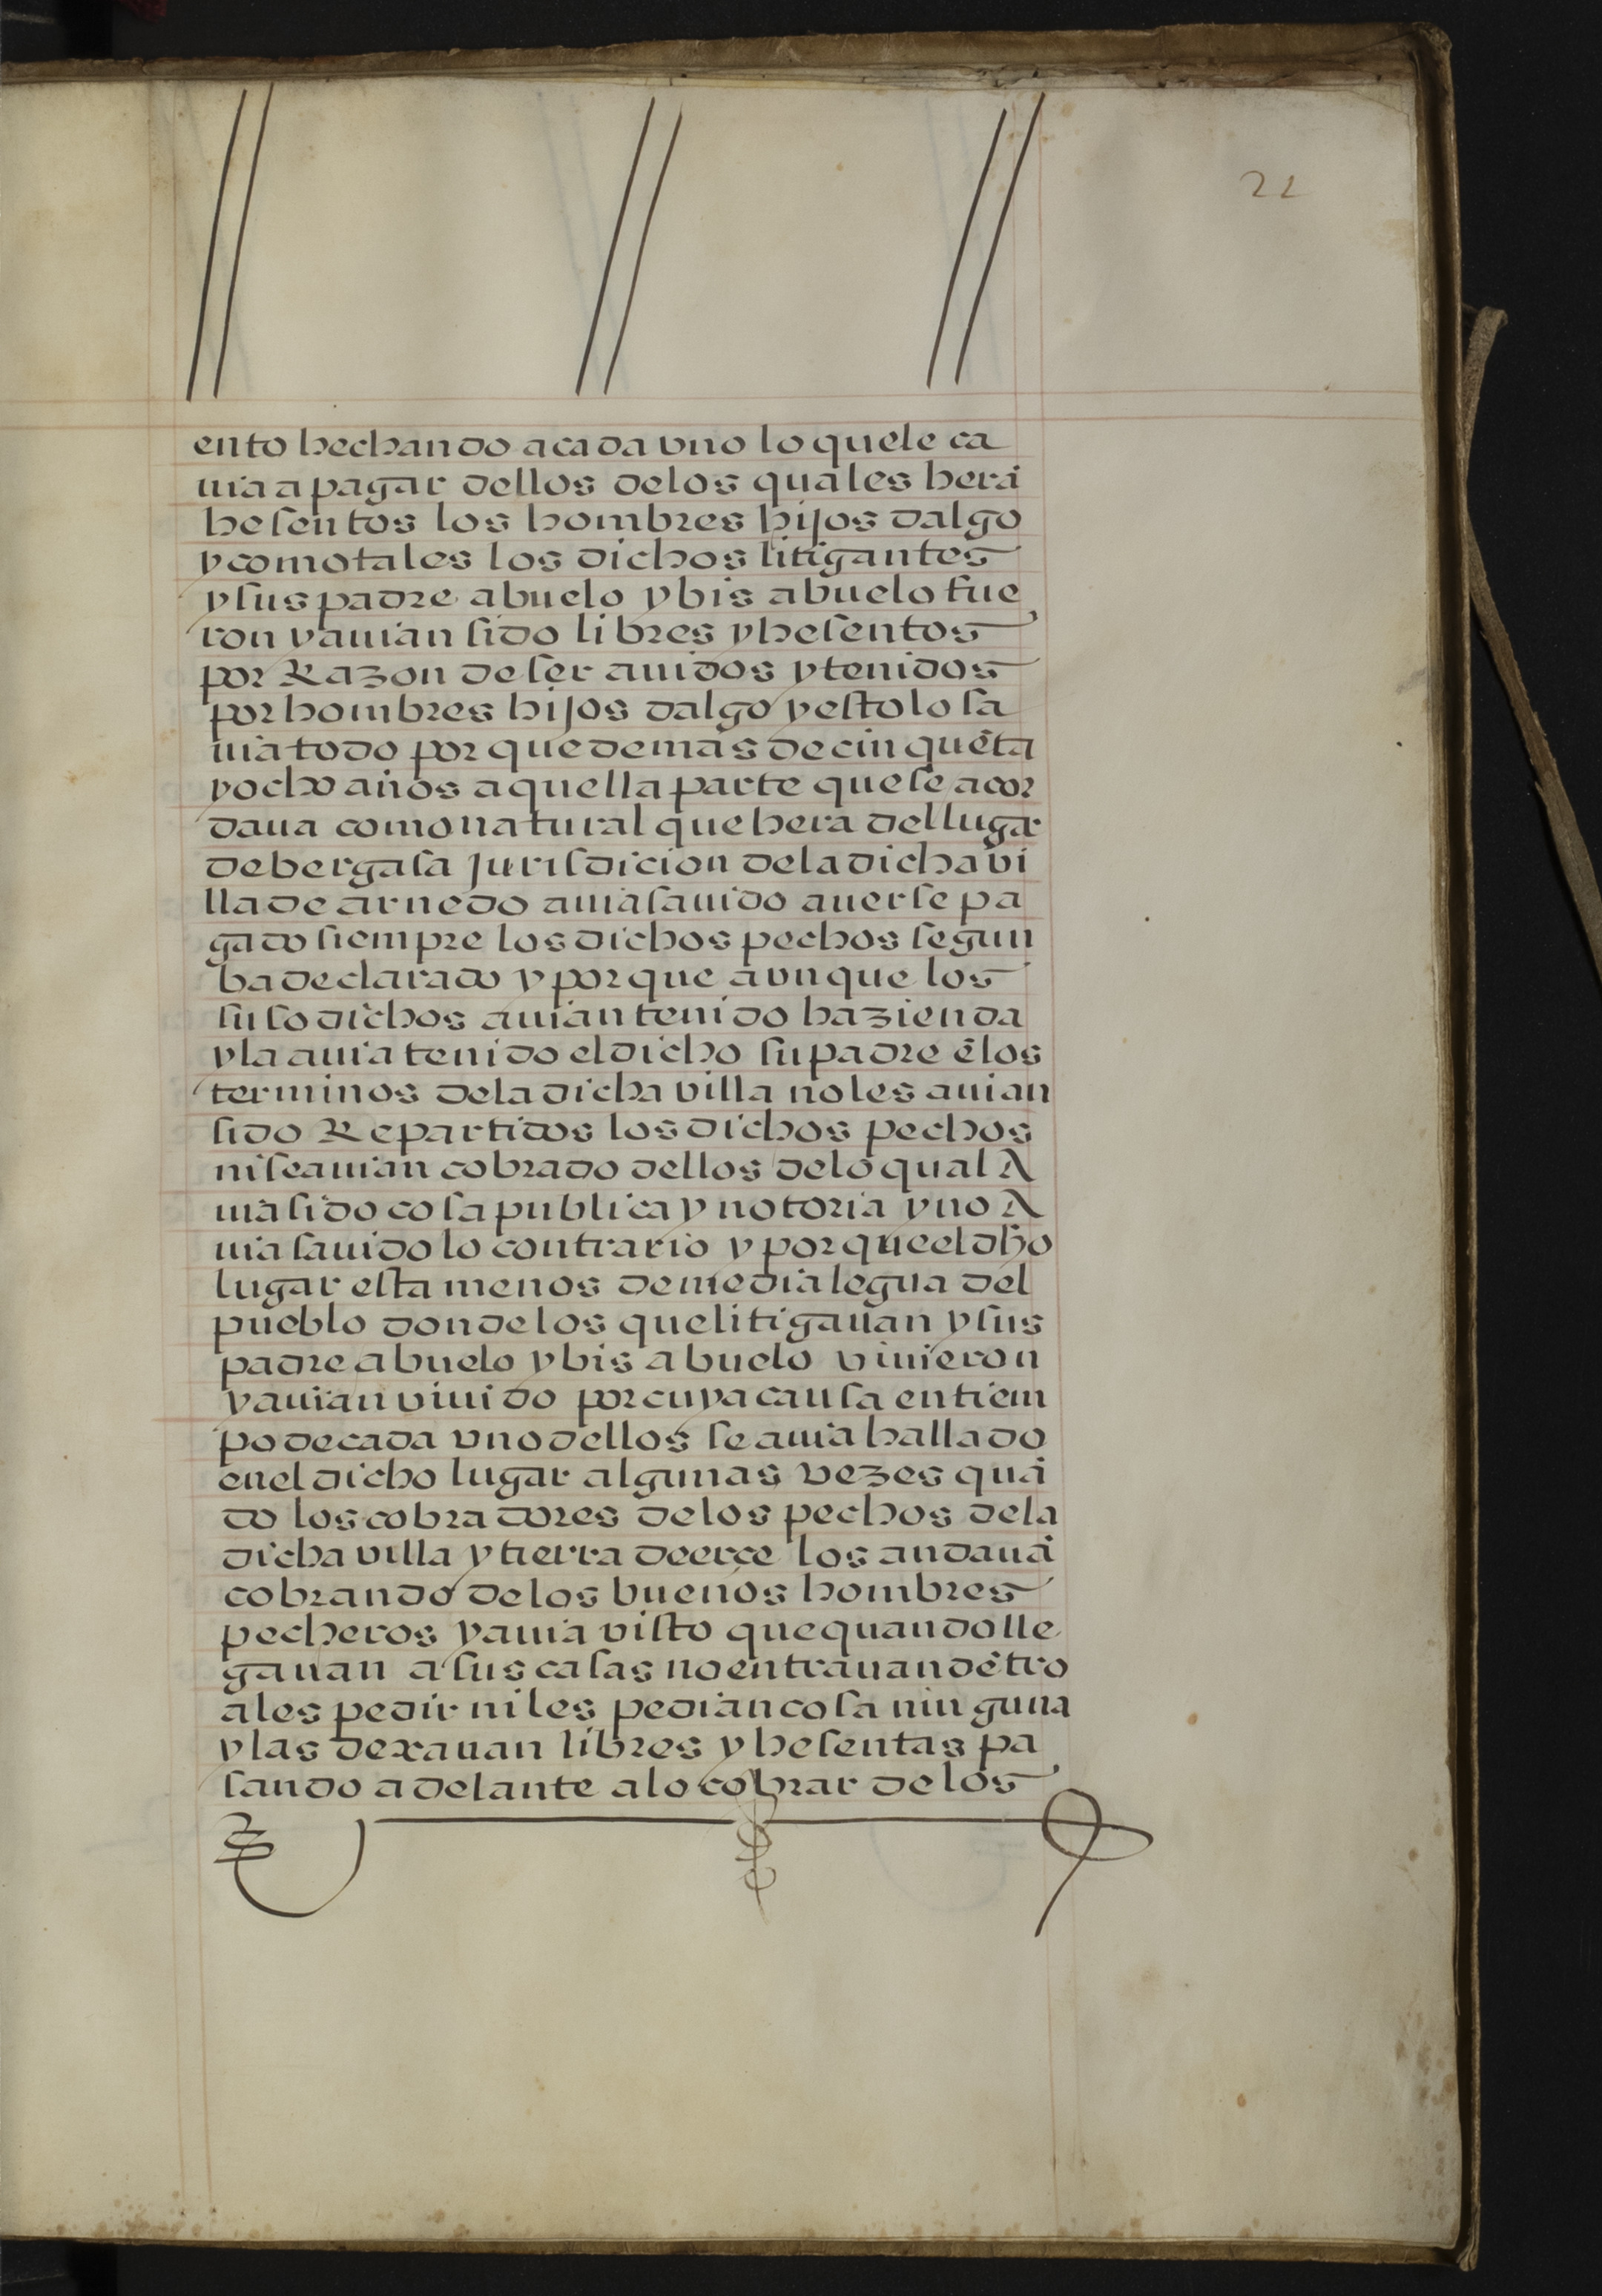 22
ento hechando a cada vno lo que le ca
uia a pagar dellos delos quales herā
hesentos los hombres hijos dalgo
y como tales los dichos litigantes
y sus padre abuelo y bis abuelo fue
ron y auian sido libres y hesentos
por Razon de ser auidos y tenidos
por hombres hijos dalgo y esto lo sa
uia todo por que demas de cinquēta
y ocho años a aquella parte que se acor
daua como natural que hera del lugar
de bergasa jurisdicion dela dicha vi
lla de arnedo auia sauido auerse pa
gado siempre los dichos pechos segun
ha declarado y por que aunque los
suso dichos auian tenido hazienda
y la auia tenido el dicho su padre ē los
terminos dela dicha villa no les auian
sido Repartidos los dichos pechos
ni se auian cobrado dellos delo qual A
uia sido cosa publica y notoria y no A
uia sauido lo contrario y por que el dho
lugar esta menos de media legua del
pueblo donde los que litigauan y sus
padre abuelo y bis abuelo viuieron
y auian viuido por cuya causa en tiem
po de cada vno dellos se auia hallado
en el dicho lugar algunas vezes quā
do los cobradores delos pechos dela
dicha villa y tierra de erçe los andauā
cobrando delos buenos hombres
pecheros y auia visto que quando lle
gauan a sus casas no entrauan dētro
a les pedir ni les pedian cosa ninguna
y las dexauan libres y hesentas pa
sando adelante a lo cobrar delos